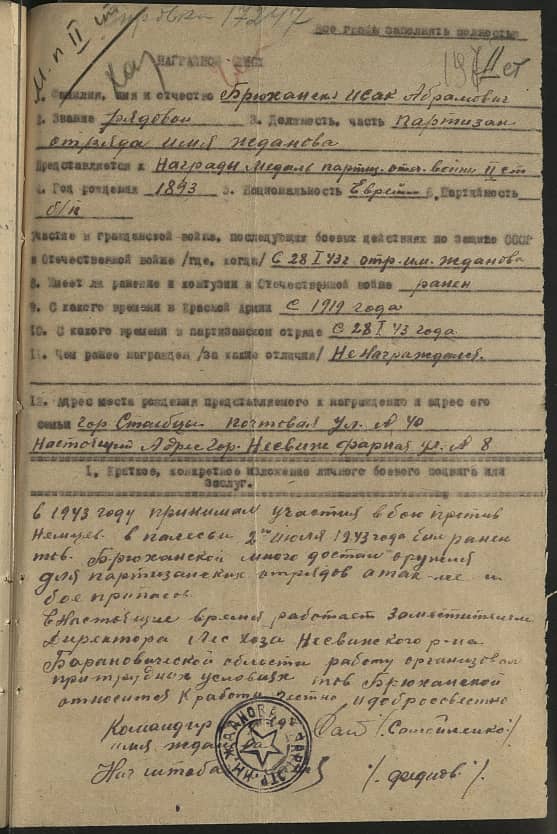 17247
ВСЕ ГРАФЫ ЗАПОЛНЯТЬ ПОЛНОСТЬЮ
м. п II ст
НАГРАДНОЙ ЛИСТ
II ст
1. Фамилия, имя и отчество Брюханский Исак Абрамович
2. Звание рядовой 3. Должность, часть Партизан
отряда имени Жданова
Представляется к Награды Медаль партиз. отеч. войны II ст
4. Год рождения 1893 5. Национальность Еврей 6. Партийность
б/п
Участие в гражданской войне, последующих боевых действиях по защите СССР
и Отечественной войне /где, когда/ С 28 I 43г. отр. им. Жданова
8. Имеет ли ранение и контузии в Отечественной войне ранен
9. С какого времени в Красной Армии С 1919 года
10. С какого времени в партизанском отряде С 28 I 43 года
11. Чем ранее награжден /за какие отличия/ Не награждался.
12. Адрес места рождения представляемого к награждению и адрес его
семьи Гор Столбцы Почтовая ул. N 40
Настоящий Адрес Гор. Несвиж фарная ул. N 8
I. Краткое, конкретное изложение личного боевого подвига или
заслуг.
в 1943 году принимал участия в бою против
Немцев в палесьи 2го июля 1943 года был ранен
тов. Брюханской много достал оружия
для партизанских отрядов а так-же и
бое припасов.
в Настоящие время работает Заместителем
Директора Лес Хоза Несвижского р-на
Барановической области работу организовал
при трудных условиях тов Брюханской
относится к работи честно и добросовестно
Командир
имя Жданова
Нач штаба